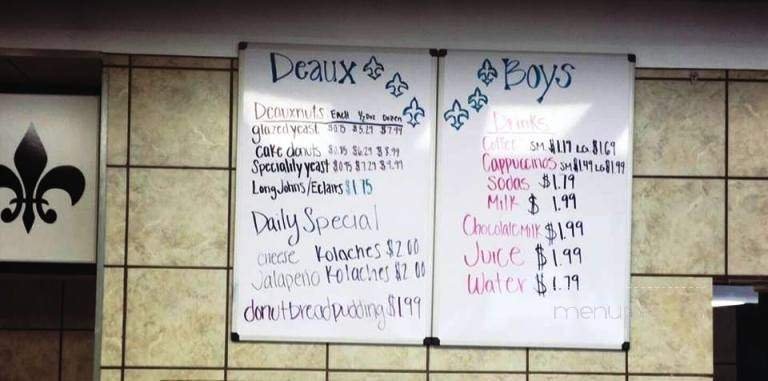 Deaux
Deauxnuts Each 1/2 Doz Dozen
glazed yeast $7.99
Cake donuts
Speciality yeast
Long Johns/Eclairs $1.75
Daily Special
cheese Kolaches $2.00
Jalapeño Kolaches $2.00
donut bread pudding $1.99
Boys
Drinks
Coffee SM $1.19 LG $1.69
Cappuccinos SM $1.49 LG $1.99
Sodas $1.79
Milk $1.99
Chocolate Milk $1.99
Juice $1.99
Water $1.79
menu